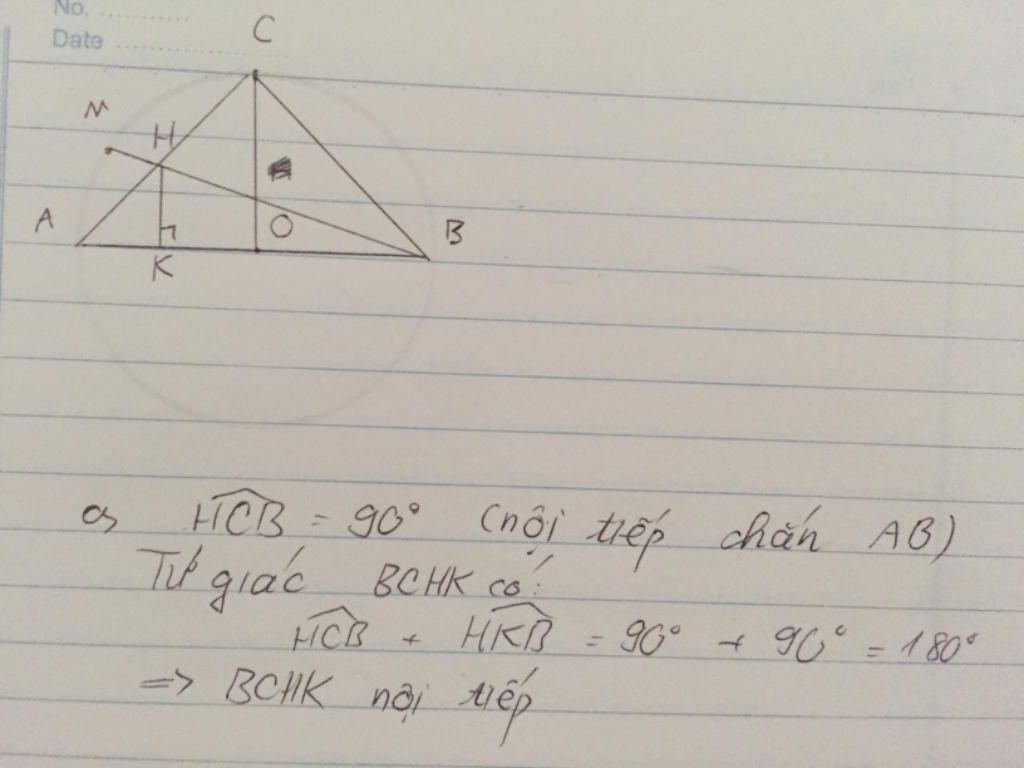 No. ...........
Date .......................
C
M
H
A
O
B
K
a, HCB = 90° (nội tiếp chắn AB)
Tứ giác BCHK có:
HCB + HKB = 90° + 90° = 180°
=> BCHK nội tiếp